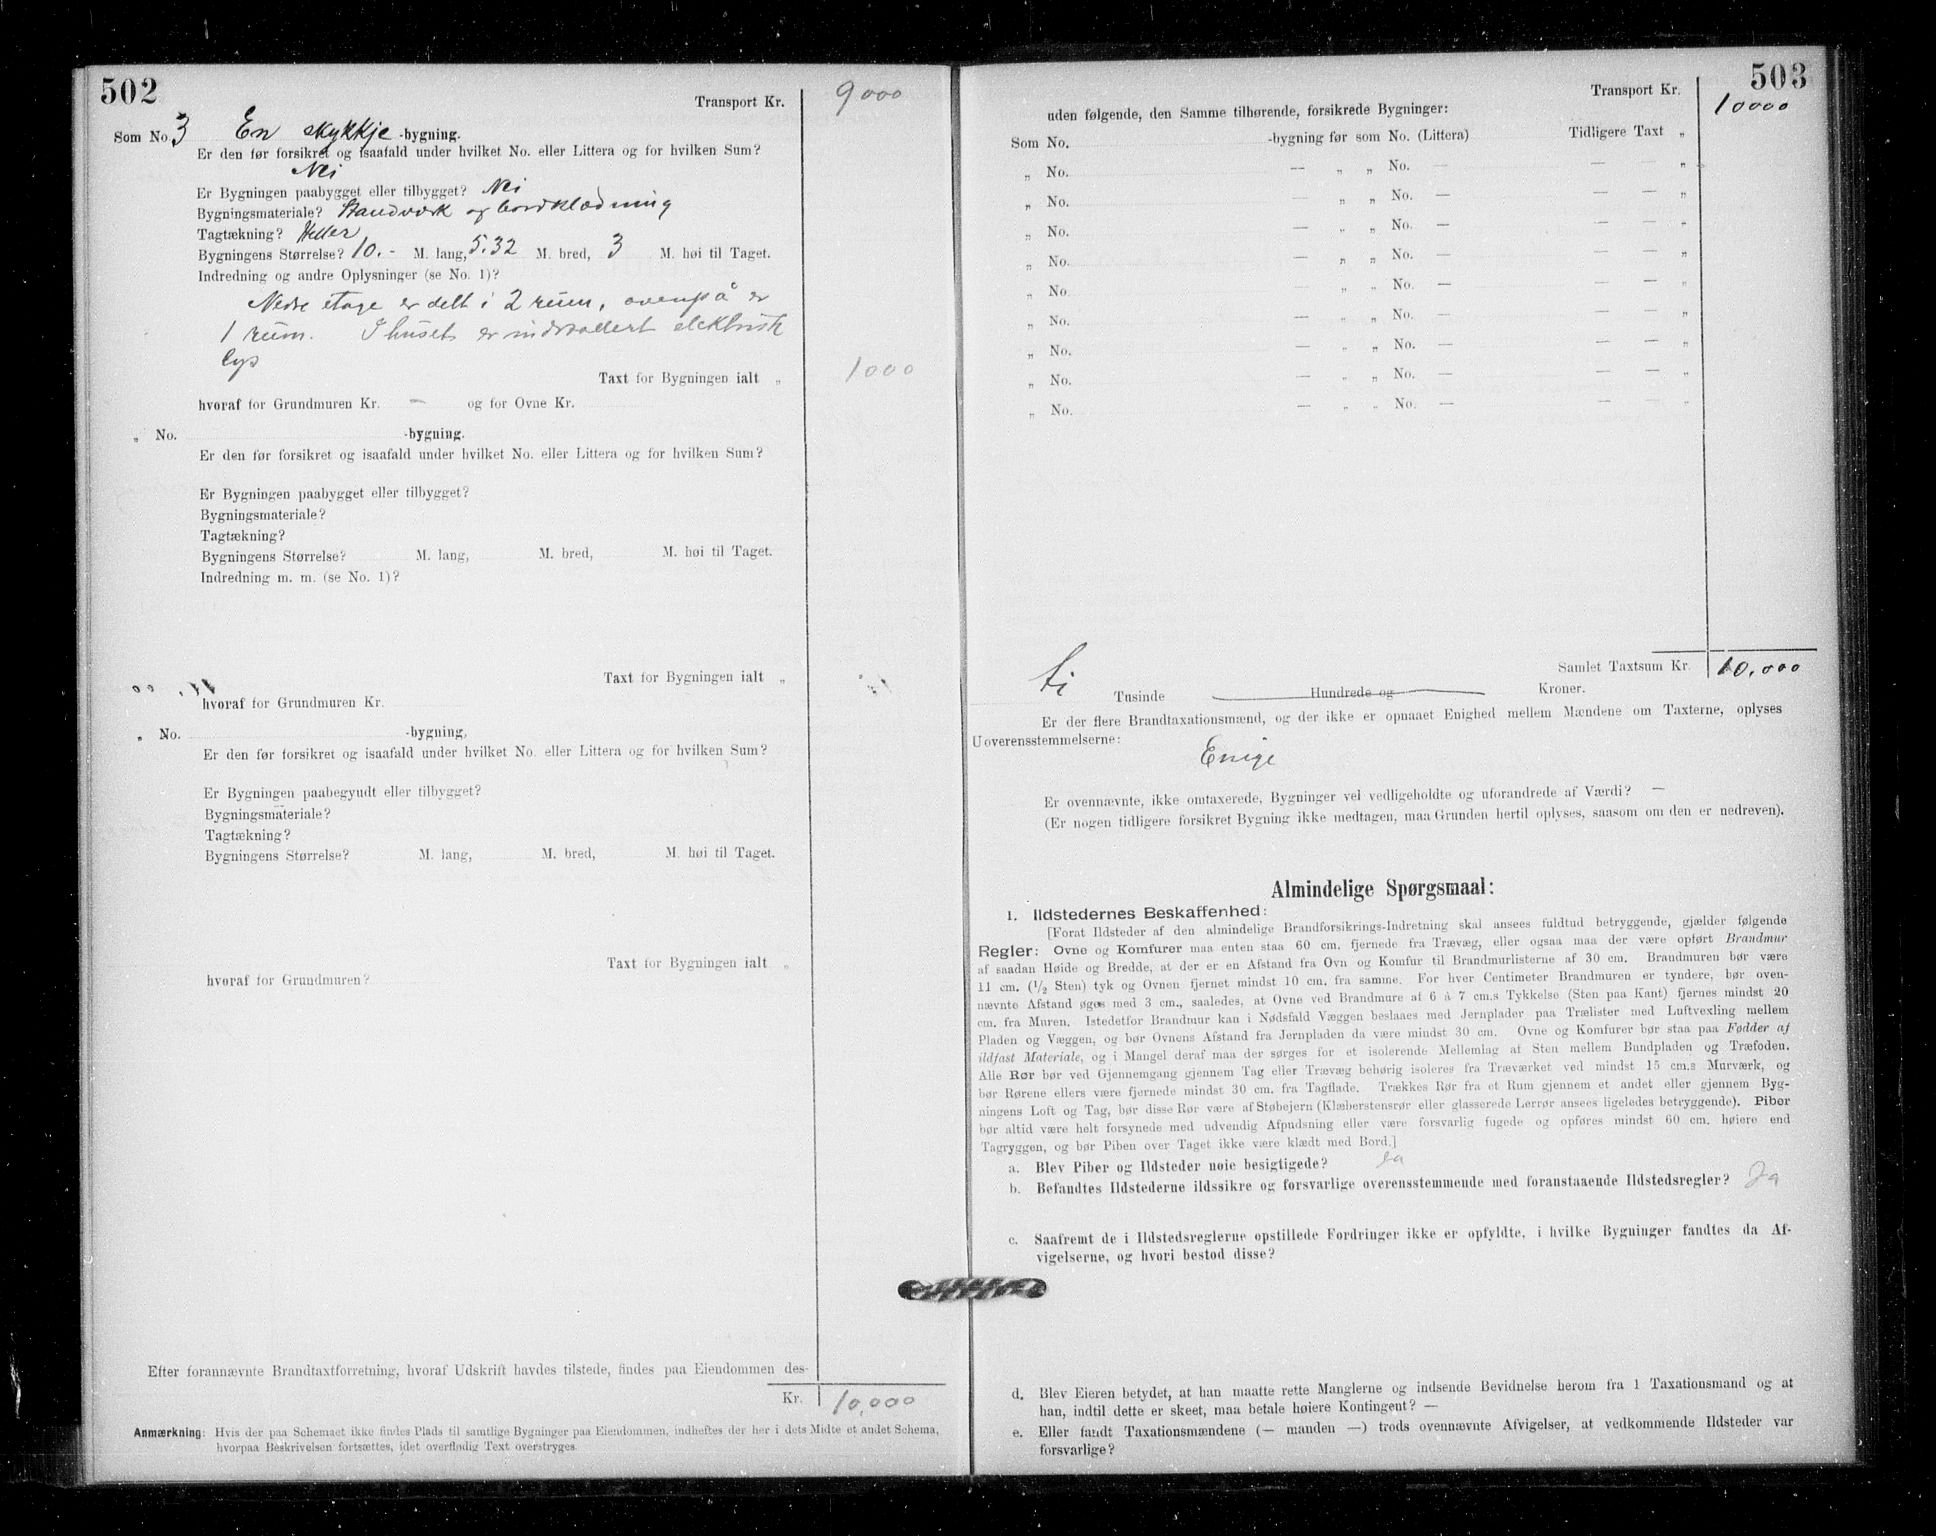 502
Transport Kr. 9000
Som No 3 En skykkje -bygning.
Er den før forsikret og isaafald under hvilket No. eller Littera og for hvilken Sum?
Nei
Er Bygningen paabygget eller tilbygget? Nei
Bygningsmateriale? Standverk og bordklædning
Tagtækning? Heller
Bygningens Størrelse? 10.- M. lang, 5.32 M. bred, 3 M. høi til Taget.
Indredning og andre Oplysninger (se No. 1)?
Nedre etage er delt i 2 rum, ovenpå er
1 rum. I huset er indstallert elektrisk
lys
Taxt for Bygningen ialt „ 1000
hvoraf for Grundmuren Kr. — og for Ovne Kr.
„ No. -bygning.
Er den før forsikret og isaafald under hvilket No. eller Littera og for hvilken Sum?
Er Bygningen paabygget eller tilbygget?
Bygningsmateriale?
Tagtækning?
Bygningens Størrelse? M. lang, M. bred, M. høi til Taget.
Indredning m. m. (se No. 1)?
Taxt for Bygningen ialt „
hvoraf for Grundmuren Kr.
„ No. -bygning,
Er den før forsikret og isaafald under hvilket No. eller Littera og for hvilken Sum?
Er Bygningen paabegyndt eller tilbygget?
Bygningsmateriale?
Tagtækning?
Bygningens Størrelse? M. lang, M. bred, M. høi til Taget.
Taxt for Bygningen ialt „
hvoraf for Grundmuren?
Efter forannævnte Brandtaxtforretning, hvoraf Udskrift havdes tilstede, findes paa Eiendommen des-
Kr. 10,000
Anmærkning: Hvis der paa Schemaet ikke findes Plads til samtlige Bygninger paa Eiendommen, indheftes der her i dets Midte et andet Schema,
hvorpaa Beskrivelsen fortsættes, idet overflødig Text overstryges.
503
Transport Kr. 10000
uden følgende, den Samme tilhørende, forsikrede Bygninger:
Som No. -bygning før som No. (Littera) Tidligere Taxt „
„ No. — „ „ No. — — — „
„ No. — „ „ No. — — — „
„ No. — „ „ No. — — — „
„ No. — „ „ No. — — — „
„ No. — „ „ No. — — — „
„ No. — „ „ No. — — — „
„ No. — „ „ No. — — — „
„ No. — „ „ No. — — — „
„ No. — „ „ No. — — — „
Samlet Taxtsum Kr. 10,000
ti Tusinde Hundrede og Kroner.
Er der flere Brandtaxationsmænd, og der ikke er opnaaet Enighed mellem Mændene om Taxterne, oplyses
Uoverensstemmelserne:
Enige
Er ovennævnte, ikke omtaxerede, Bygninger vel vedligeholdte og uforandrede af Værdi? —
(Er nogen tidligere forsikret Bygning ikke medtagen, maa Grunden hertil oplyses, saasom om den er nedreven).
Almindelige Spørgsmaal:
1. Ildstedernes Beskaffenhed:
[Forat Ildsteder af den almindelige Brandforsikrings-Indretning skal ansees fuldtud betryggende, gjælder følgende
Regler: Ovne og Komfurer maa enten staa 60 cm. fjernede fra Trævæg, eller ogsaa maa der være opført Brandmur
af saadan Høide og Bredde, at der er en Afstand fra Ovn og Komfur til Brandmurlisterne af 30 cm. Brandmuren bør være
11 cm. (1/2 Sten) tyk og Ovnen fjernet mindst 10 cm. fra samme. For hver Centimeter Brandmuren er tyndere, bør oven-
nævnte Afstand øges med 3 cm., saaledes, at Ovne ved Brandmure af 6 à 7 cm.s Tykkelse (Sten paa Kant) fjernes mindst 20
cm. fra Muren. Istedetfor Brandmur kan i Nødsfald Væggen beslaaes med Jernplader paa Trælister med Luftvexling mellem
Pladen og Væggen, og bør Ovnens Afstand fra Jernpladen da være mindst 30 cm. Ovne og Komfurer bør staa paa Fødder af
ildfast Materiale, og i Mangel deraf maa der sørges for et isolerende Mellemlag af Sten mellem Bundpladen og Træfoden.
Alle Rør bør ved Gjennemgang gjennem Tag eller Trævæg behørig isoleres fra Træværket ved mindst 15 cm.s Murværk, og
bør Rørene ellers være fjernede mindst 30 cm. fra Tagflade. Trækkes Rør fra et Rum gjennem et andet eller gjennem Byg-
ningens Loft og Tag, bør disse Rør være af Støbejern (Klæberstensrør eller glasserede Lerrør ansees ligeledes betryggende). Piber
bør altid være helt forsynede med udvendig Afpudsning eller være forsvarlig fugede og opføres mindst 60 cm. høiere end
Tagryggen, og bør Piben over Taget ikke være klædt med Bord.]
a. Blev Piber og Ildsteder nøie besigtigede? Ja
b. Befandtes Ildstederne ildssikre og forsvarlige overensstemmende med foranstaaende Ildstedsregler? Ja
c. Saafremt de i Ildstedsreglerne opstillede Fordringer ikke er opfyldte, i hvilke Bygninger fandtes da Af-
vigelserne, og hvori bestod disse?
d. Blev Eieren betydet, at han maatte rette Manglerne og indsende Bevidnelse herom fra 1 Taxationsmand og at
han, indtil dette er skeet, maa betale høiere Kontingent? —
e. Eller fandt Taxationsmændene (— manden —) trods ovennævnte Afvigelser, at vedkommende Ildsteder var
forsvarlige?